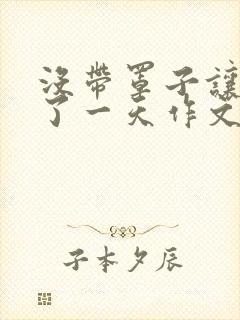 没带罩子让
了一天作文
子本夕辰